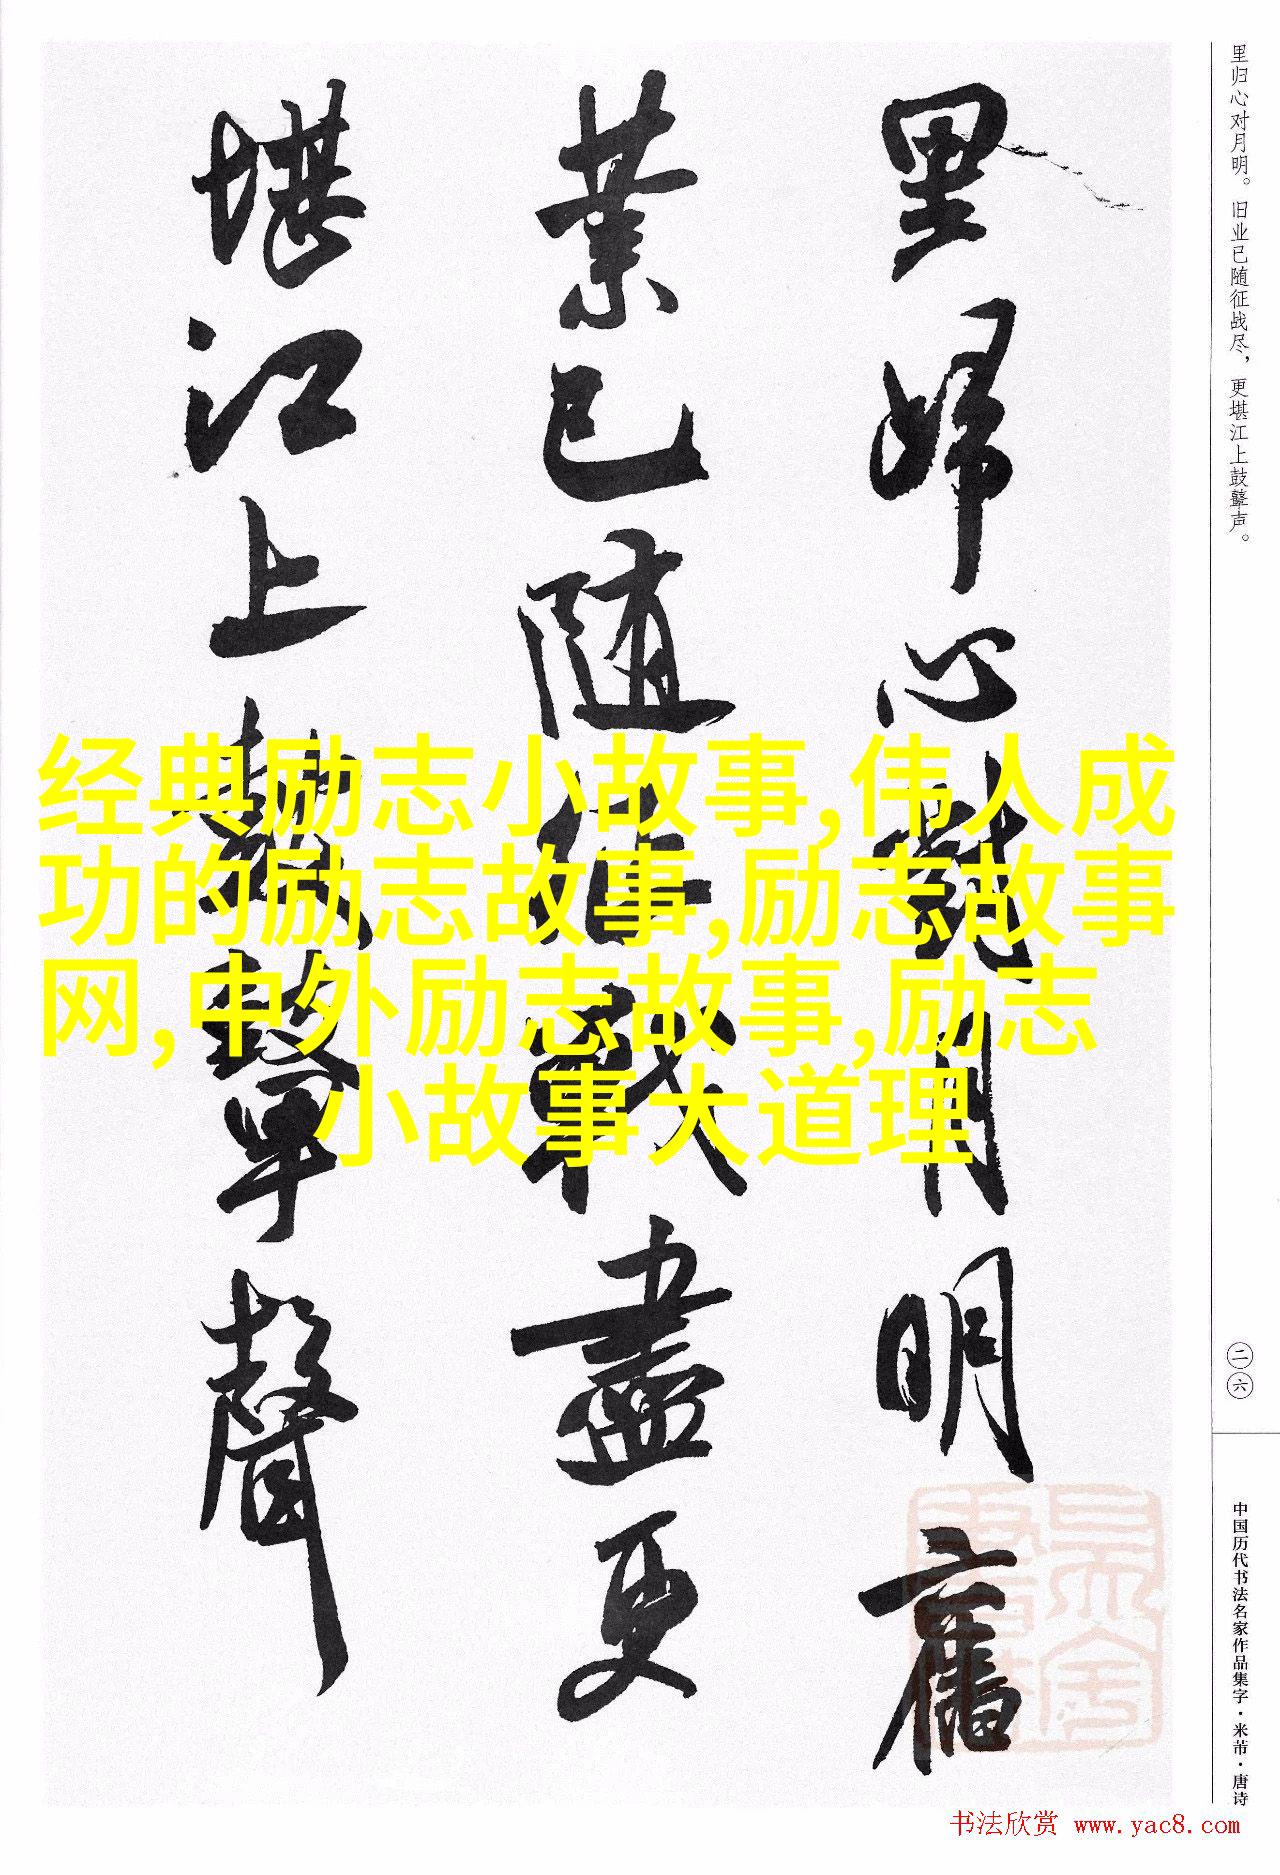 里歸心對月明舊
業已随征戰盡更
堪江上鼓鼙聲
里归心对月明。旧业已随征战尽，更堪江上鼓鼙声。
二六
中国历代书法名家作品集字·米芾·唐诗
经典励志小故事,伟人成
功的励志故事,励志故事
网,中外励志故事,励志
小故事大道理
书法欣赏 www.yac8.com